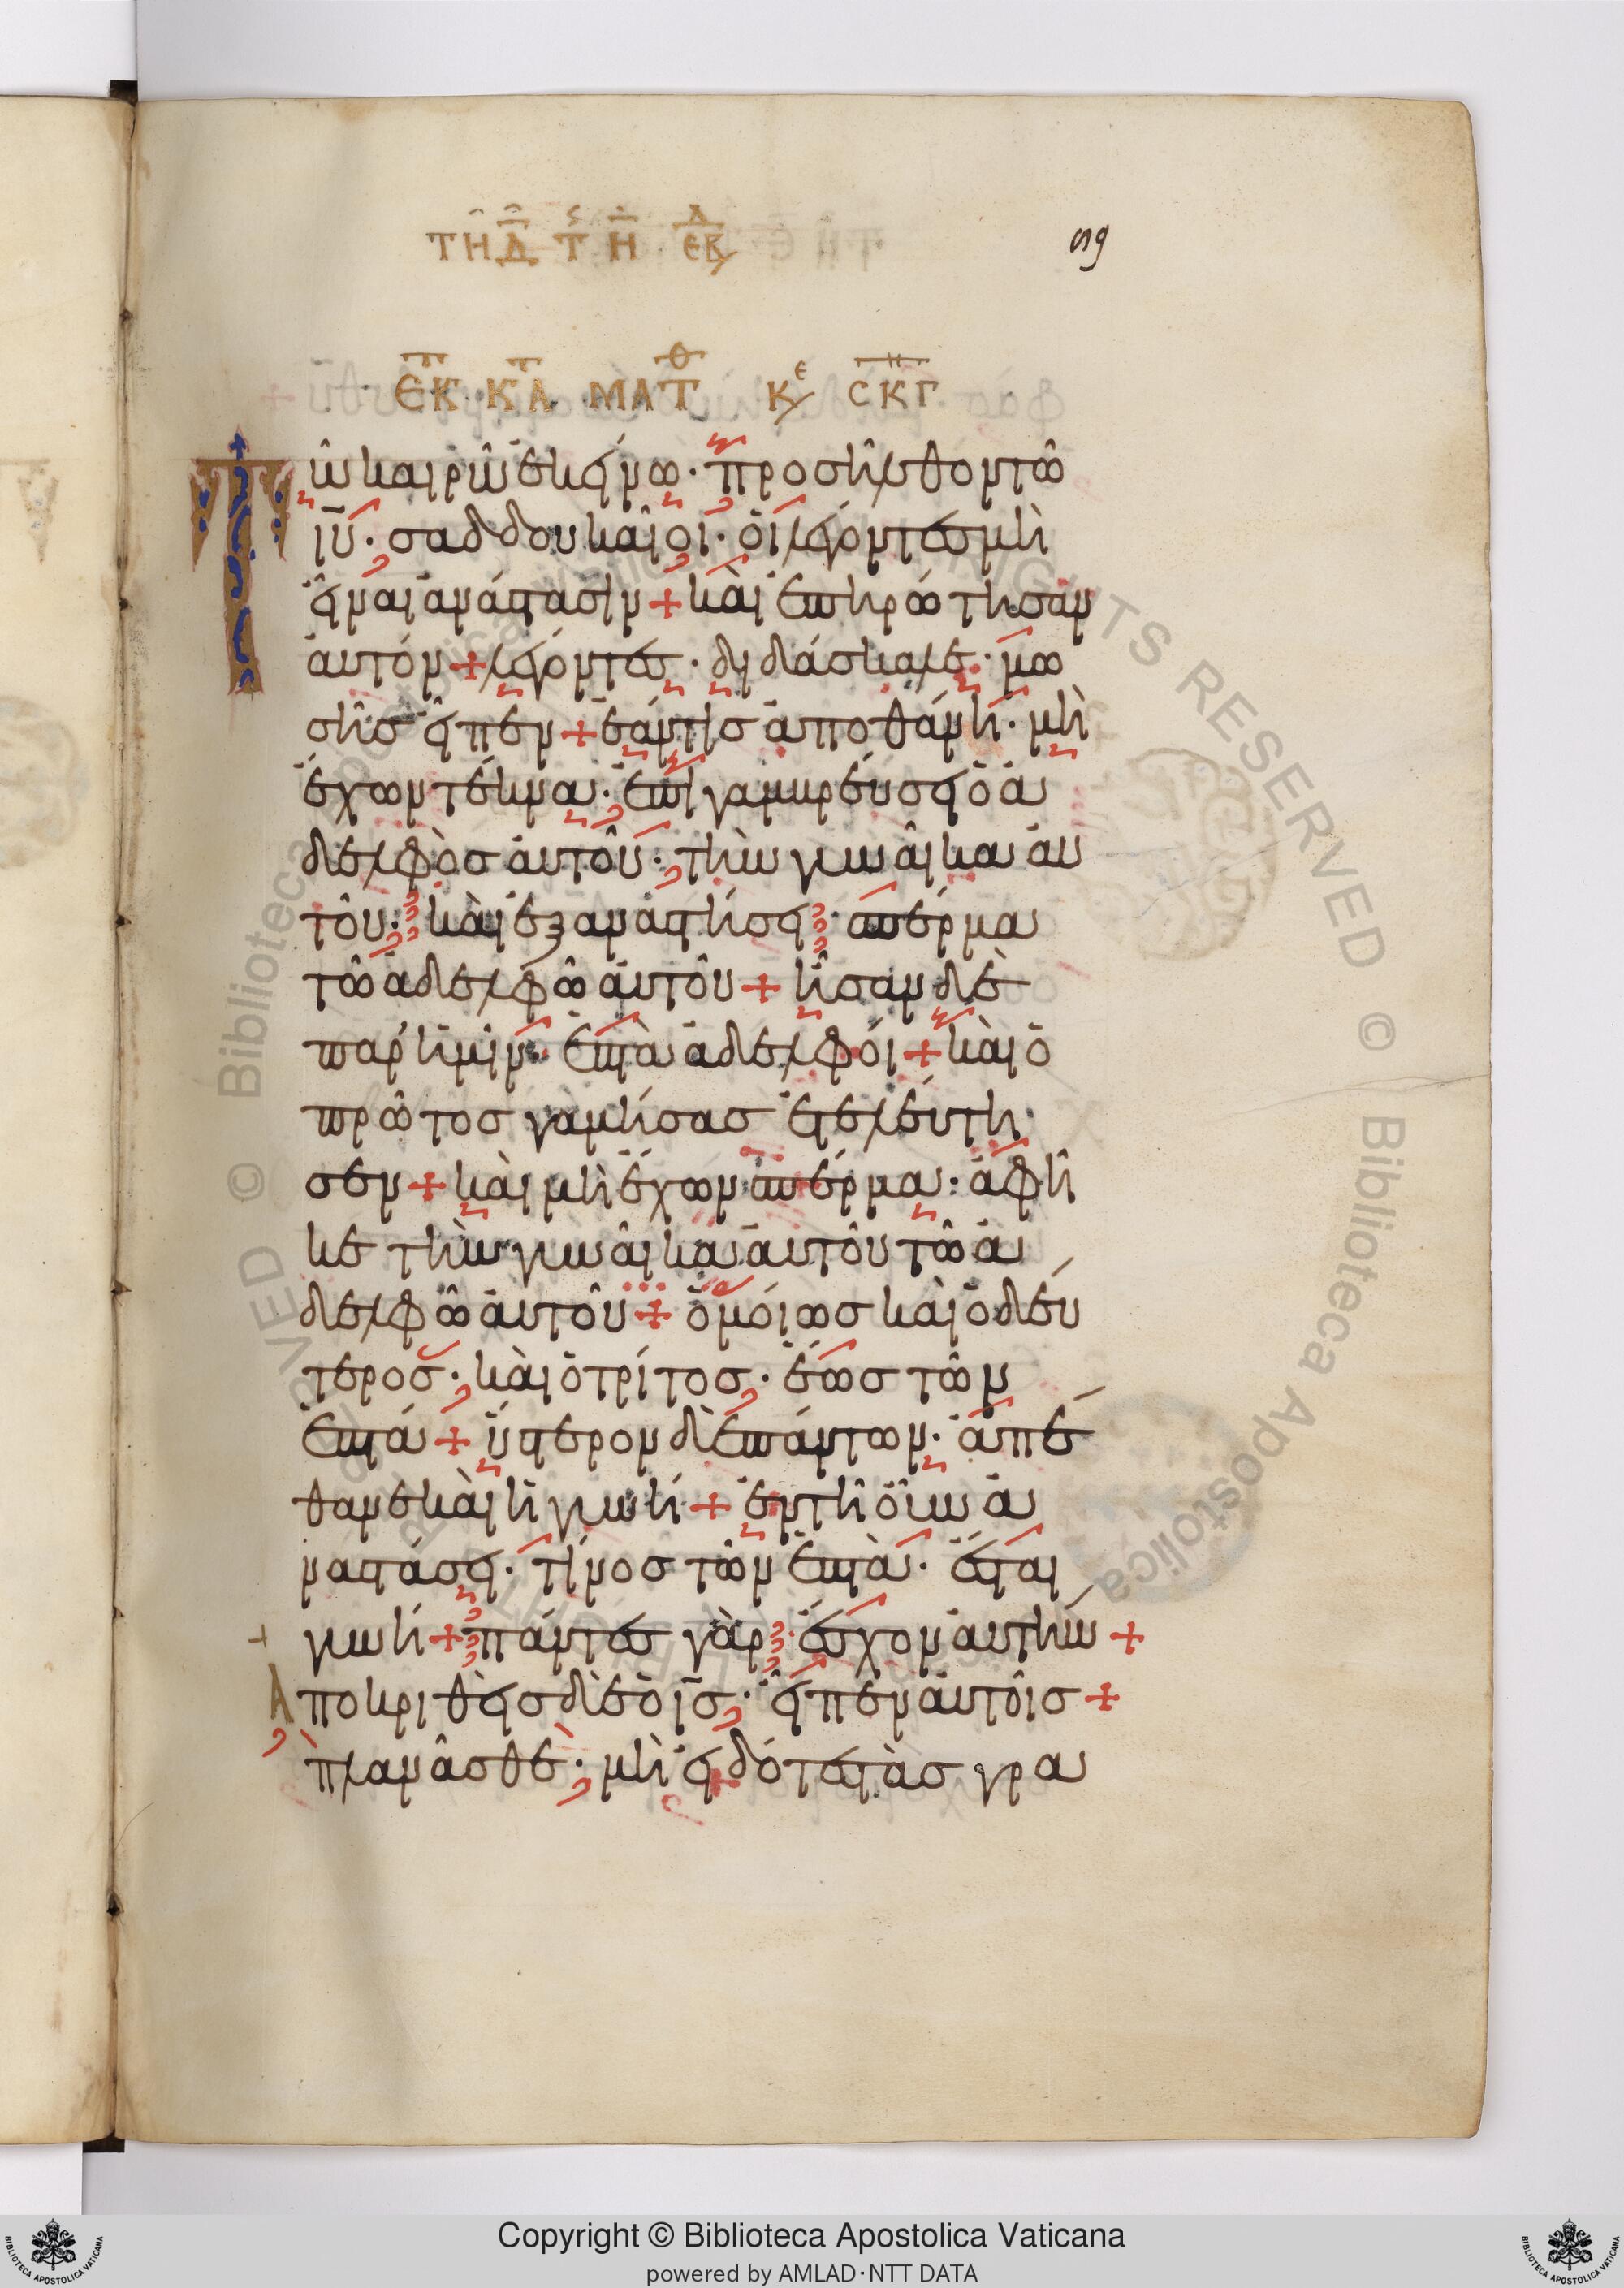 ΤΗ Δ Τ Η ΕΒΔ
59
ΕΚ Κ͞Τ Α ΜΑΤΘ ΚΕ ΣΚΓ
Τῶ καιρῶ ἐκείνω· προσῆλθον τῶ
ιυ̅· σαδδουκαῖοι· οἱ λέγοντες μὴ
εἶναι ἀνάστασιν + καὶ ἐπηρώτησαν
αὐτόν + λέγοντες· διδάσκαλε· μω
σῆς εἶπεν + ἐάν τις ἀποθάνη· μὴ
ἔχων τέκνα· ἐπιγαμβρεύσει ὁ ἀ
δελφὸς αὐτοῦ· τὴν γυναῖκα αὐ
τοῦ· καὶ ἐξαναστήσει· σπέρμα
τῶ ἀδελφῶ αὐτοῦ + ἦσαν δὲ
παρ' ἡμῖν· ἑπτὰ ἀδελφοί + καὶ ὁ
πρῶτος γαμήσας ἐτελεύτη
σεν + καὶ μὴ ἔχων σπέρμα· ἀφῆ
κε τὴν γυναῖκα αὐτοῦ τῶ ἀ
δελφῶ αὐτοῦ + ὁμοίως καὶ ὁ δεύ
τερος· καὶ ὁ τρίτος· ἕως τῶν
ἑπτά + ὕστερον δὲ πάντων· ἀπέ
θανε καὶ ἡ γυνή + ἐν τῆ οὖν ἀ
ναστάσει· τίνος τῶν ἑπτὰ· ἔσται
γυνή + πάντες γὰρ· ἔσχον αὐτήν +
Ἀποκριθεὶς δὲ ὁ ις̅· εἶπεν αὐτοῖς +
πλανᾶσθε· μὴ εἰδότες τὰς γρα
Copyright © Biblioteca Apostolica Vaticana
powered by AMLAD·NTT DATA